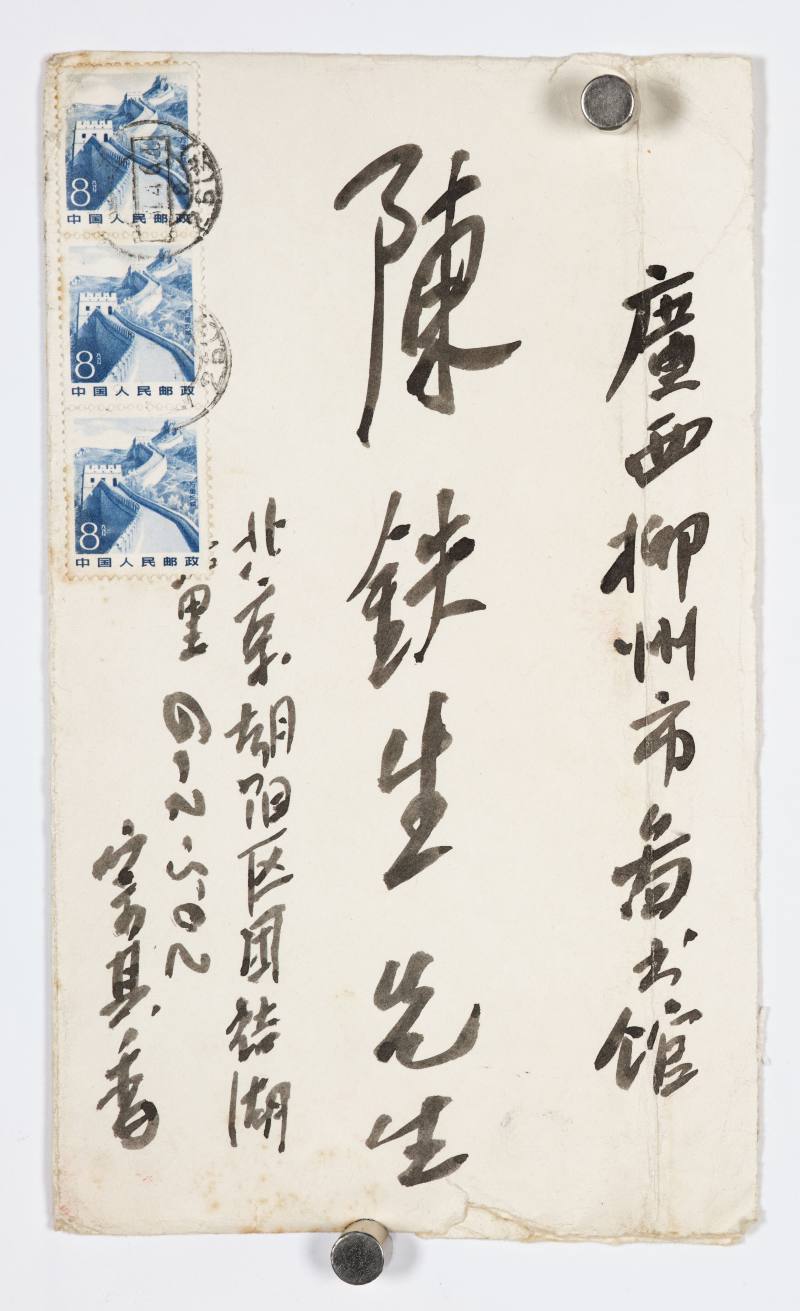 廣西柳州市圖书馆
陳鉄生先生
北京朝阳区团结湖
里 9-2-502
宗其香
8分
中国人民邮政
8分
中国人民邮政
8分
中国人民邮政